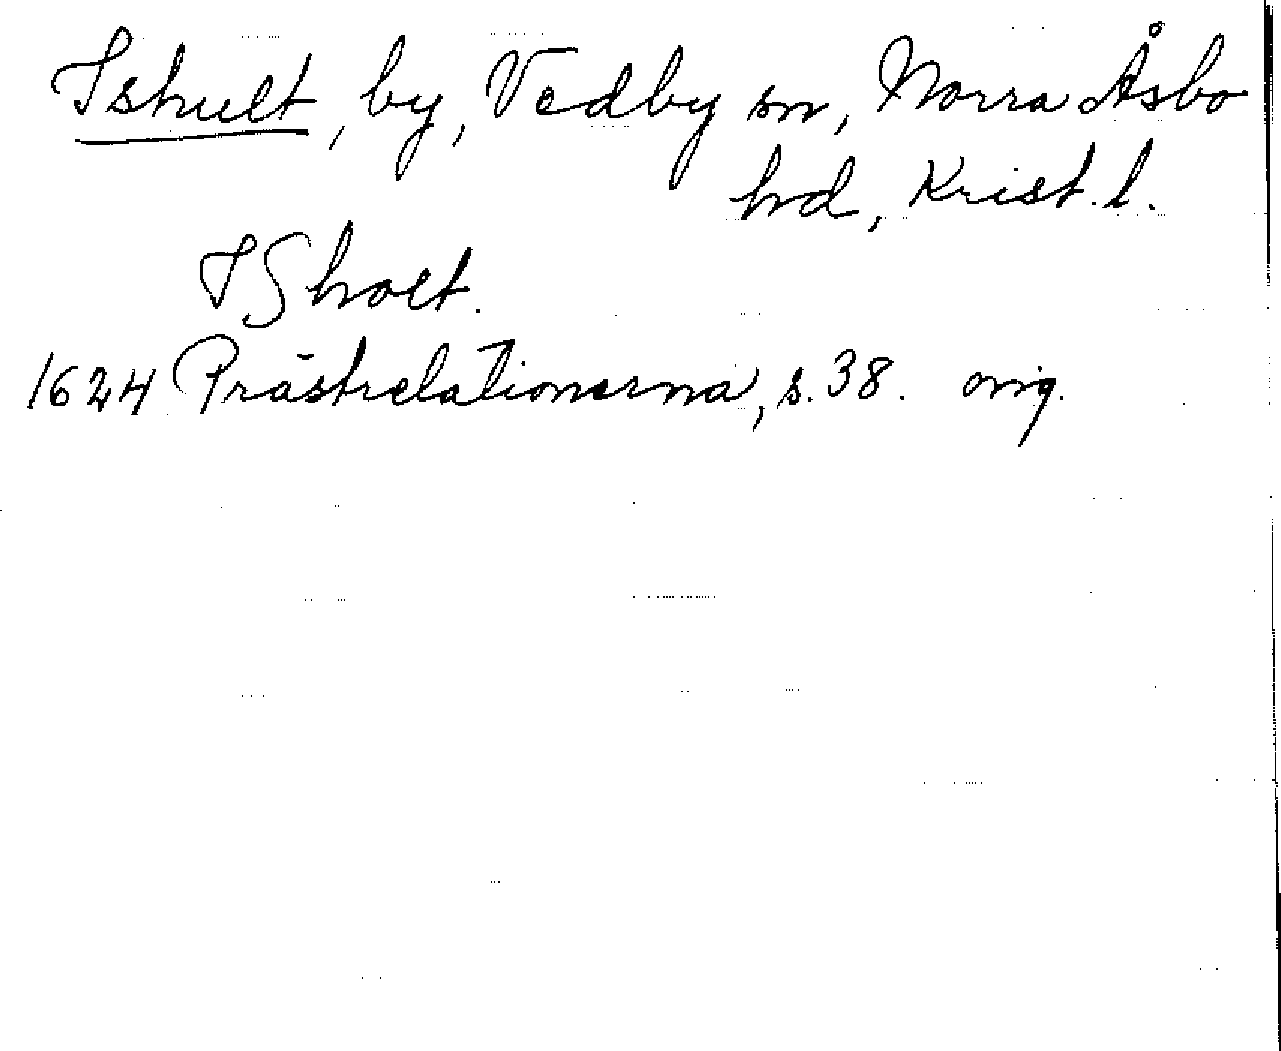 Ishult, by, Vedby sn, Norra Åsbo
hd, Krist. l.
ISholt.
1624 Prästrelationerna, s. 38. orig.